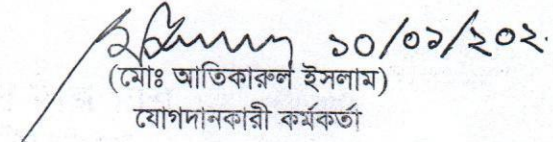 ১০/০১/২০২
(মোঃ আতিকারুল ইসলাম)
যোগদানকারী কর্মকর্তা